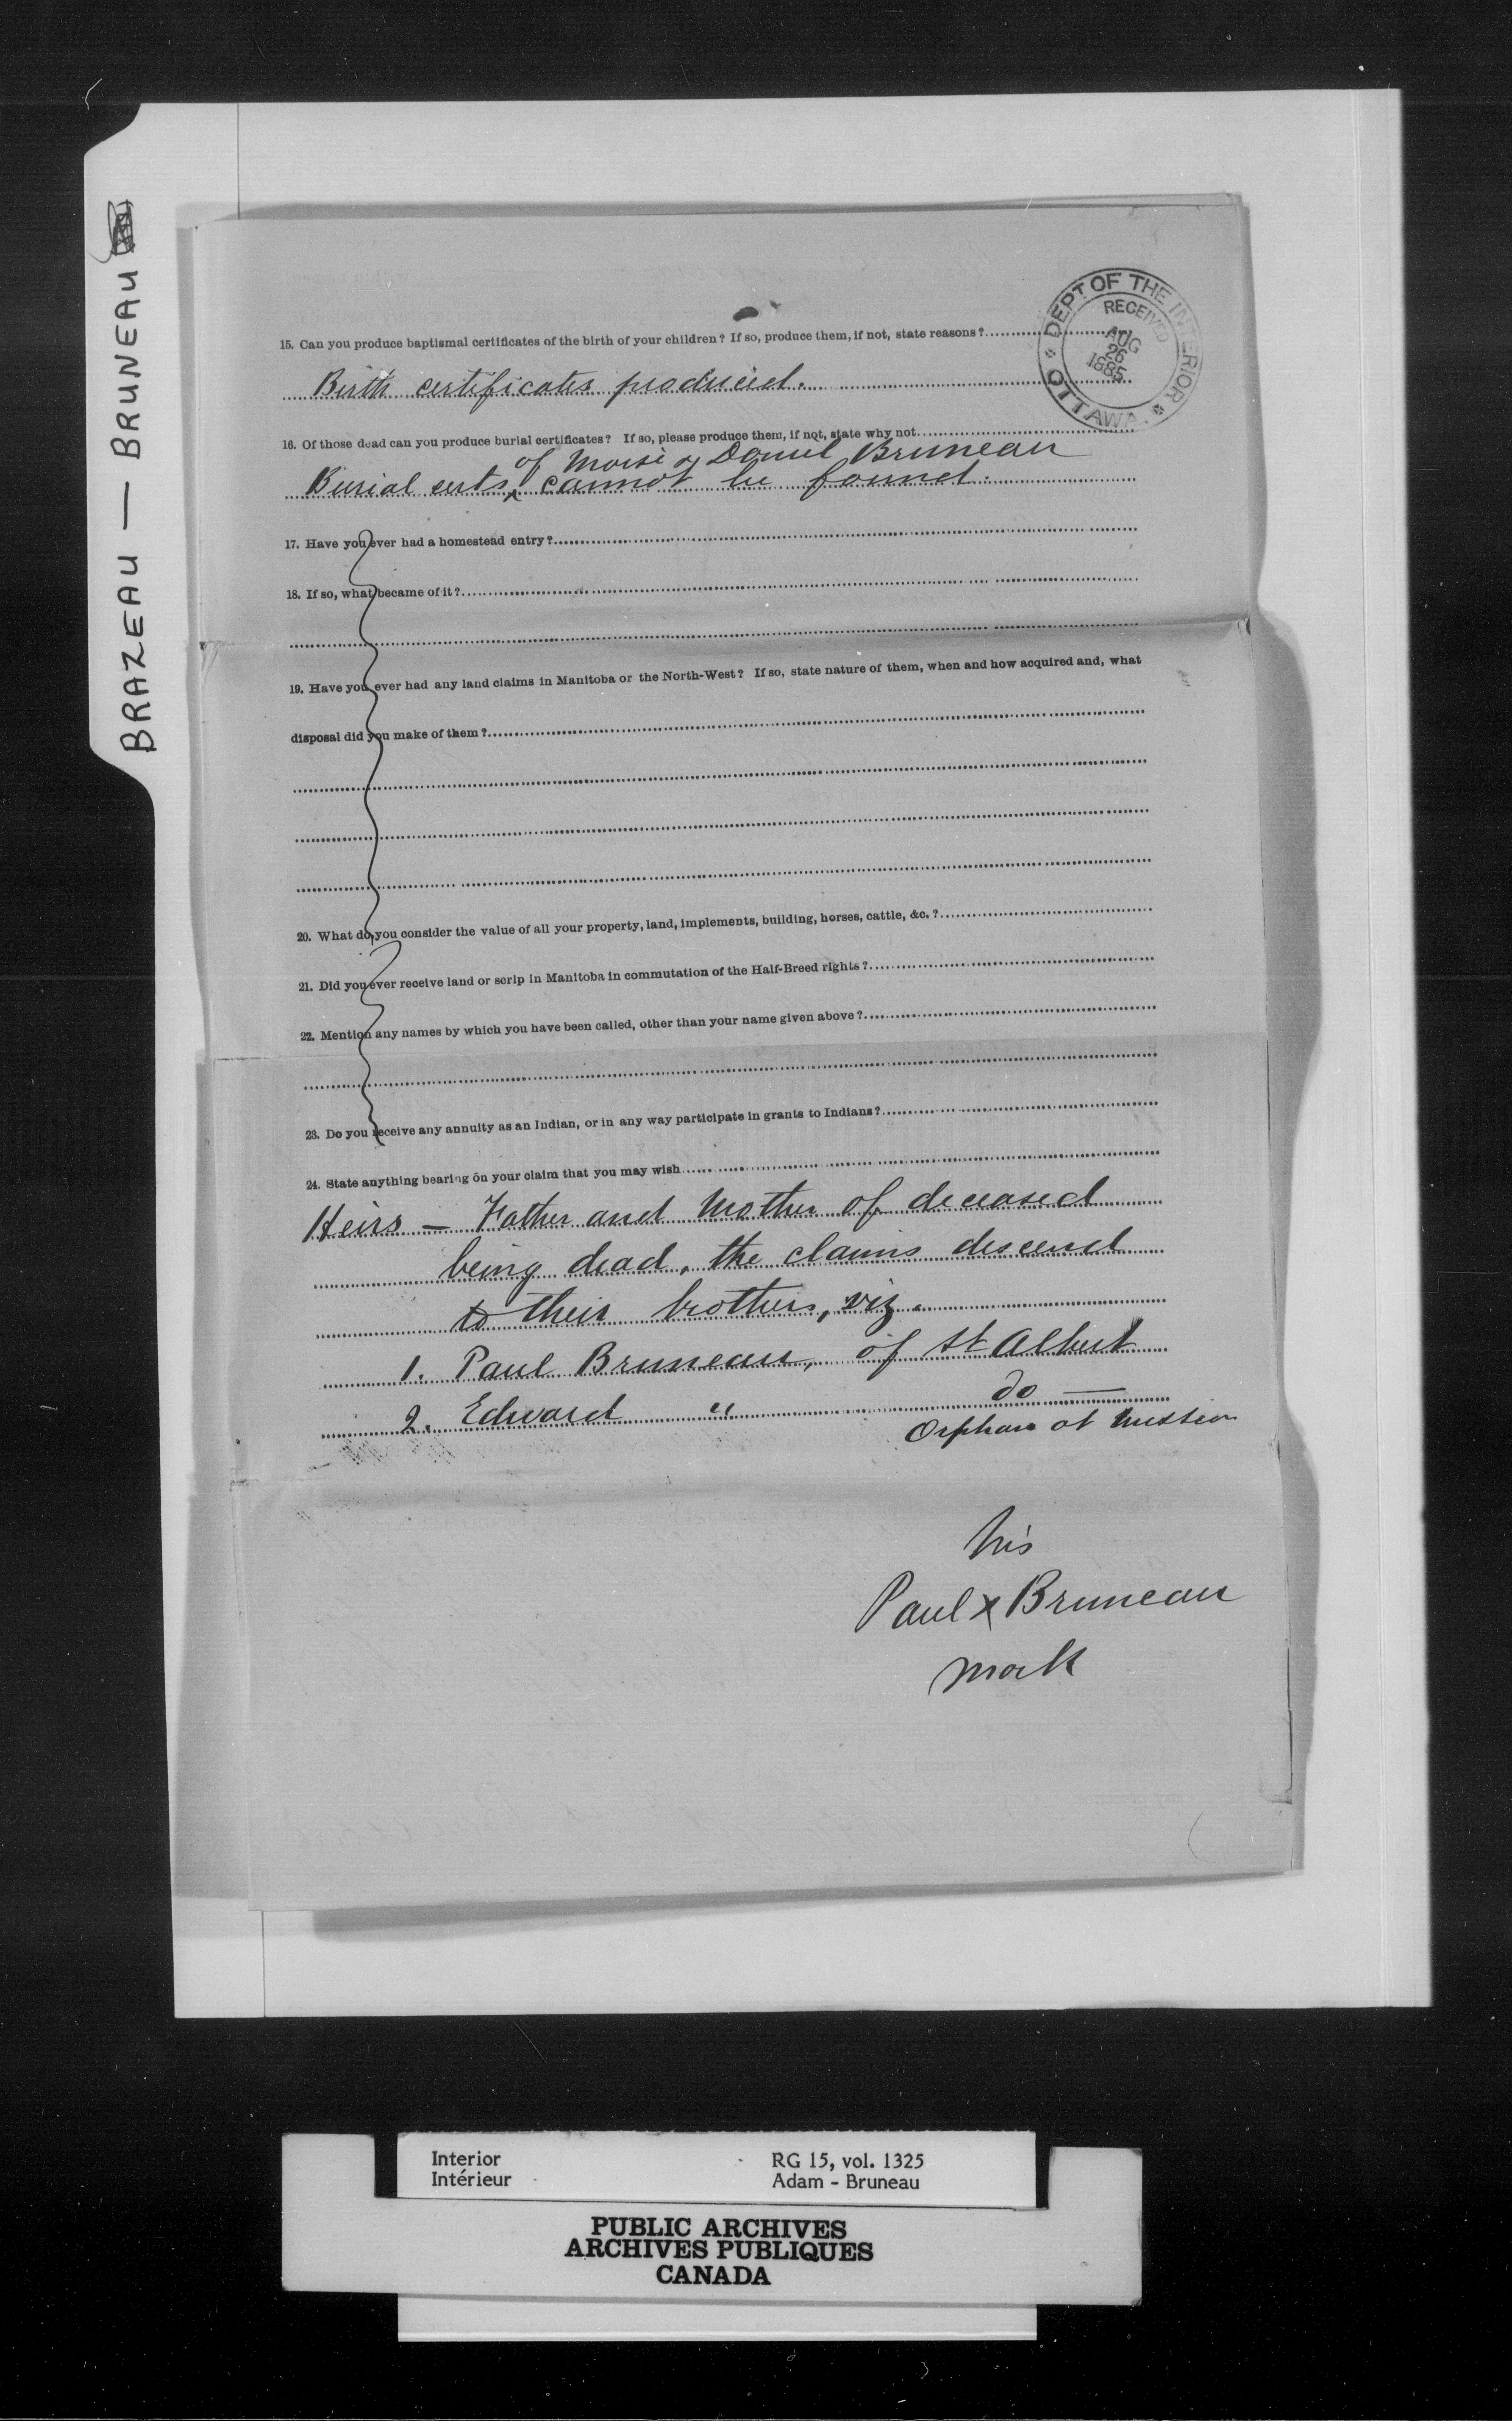 BRAZEAU — BRUNEAU
DEPT. OF THE INTERIOR
RECEIVED
AUG
26
1885
OTTAWA.
15. Can you produce baptismal certificates of the birth of your children? If so, produce them, if not, state reasons?
Birth certificates produced.
16. Of those dead can you produce burial certificates? If so, please produce them, if not, state why not
of Moise & Daniel Bruneau
Burial certs ^ cannot be found.
17. Have you ever had a homestead entry?
18. If so, what became of it?
19. Have you ever had any land claims in Manitoba or the North-West? If so, state nature of them, when and how acquired and, what
disposal did you make of them?
20. What do you consider the value of all your property, land, implements, building, horses, cattle, &c.?
21. Did you ever receive land or scrip in Manitoba in commutation of the Half-Breed rights?
22. Mention any names by which you have been called, other than your name given above?
23. Do you receive any annuity as an Indian, or in any way participate in grants to Indians?
24. State anything bearing on your claim that you may wish
Heirs — Father and Mother of deceased
being dead, the claims descend
to their brothers, viz.
1. Paul Bruneau, of St Albert
2. Edward " do —
Orphan at Mission
his
Paul x Bruneau
mark
Interior RG 15, vol. 1325
Intérieur Adam - Bruneau
PUBLIC ARCHIVES
ARCHIVES PUBLIQUES
CANADA